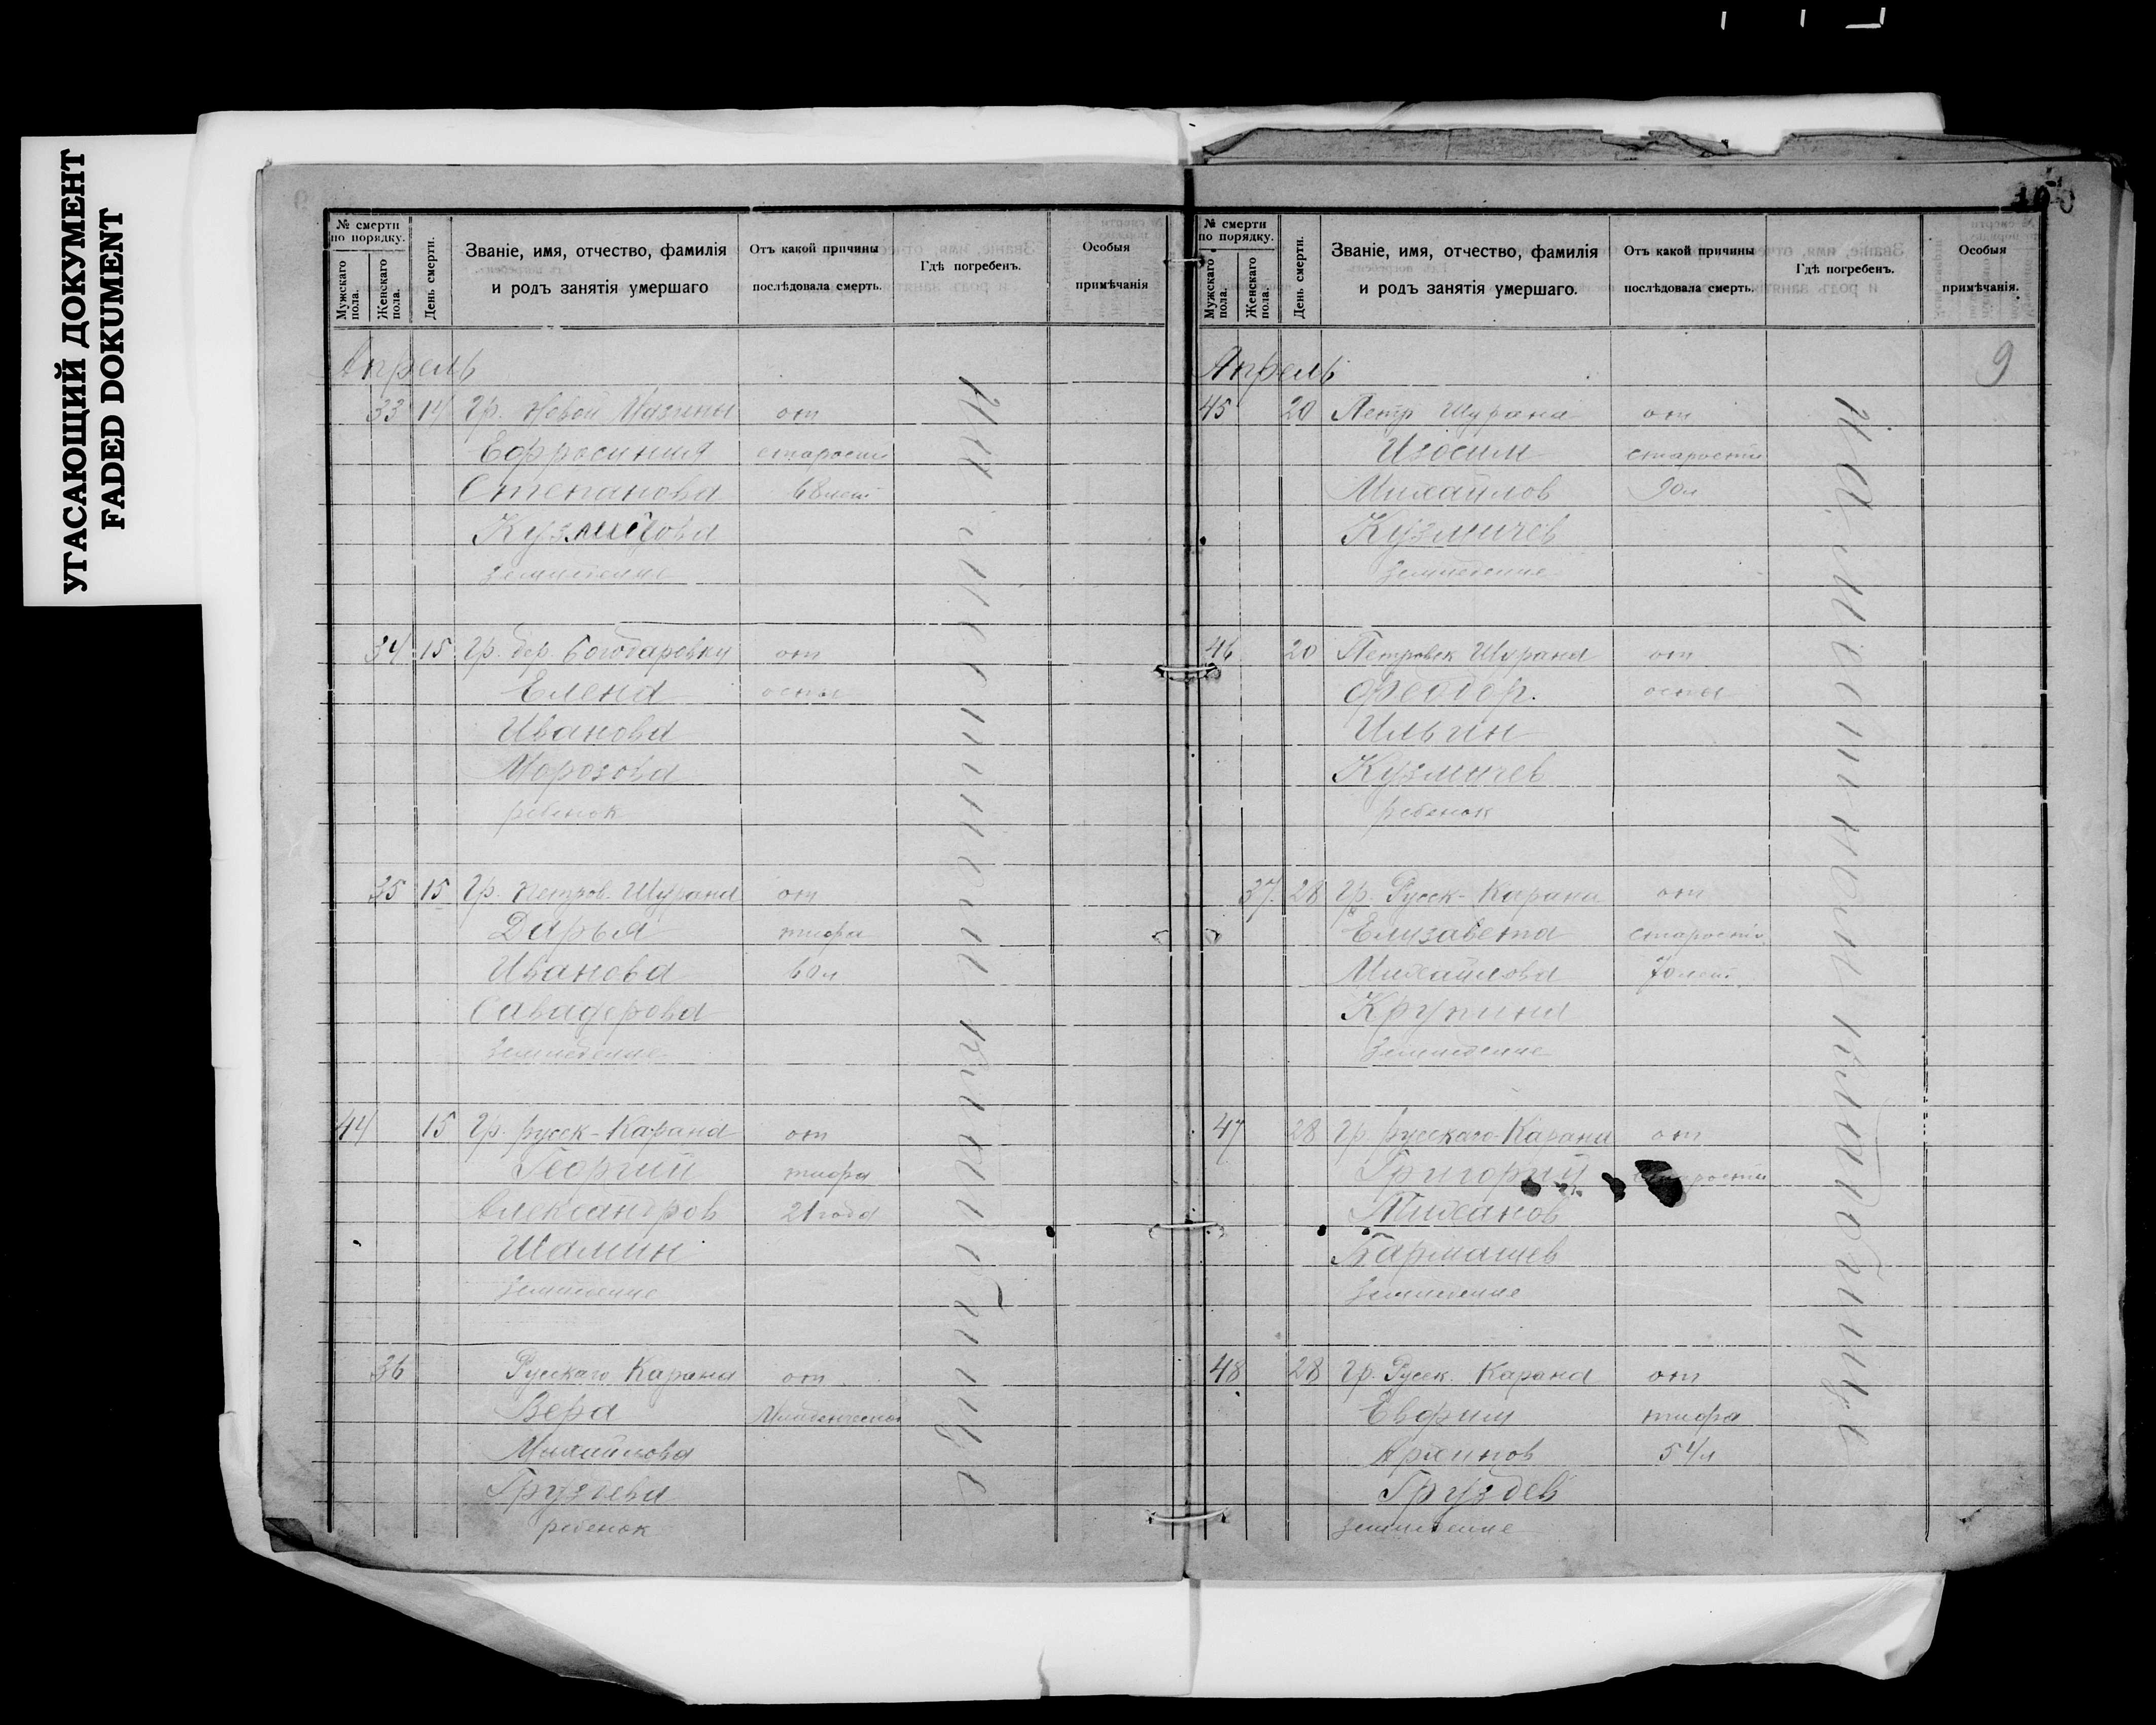 УГАСАЮЩИЙ ДОКУМЕНТ
FADED DOKUMENT
№ смерти по порядку.
Мужскаго пола.
Женскаго пола.
День смерти.
Званіе, имя, отчество, фамилія
и родъ занятія умершаго
Отъ какой причины
послѣдовала смерть.
Гдѣ погребенъ.
Особыя
примѣчанія
Апрель
33 14 Гр. Новой от
Ефросиния старости
Степанова 68 лет
Кузмичова
Земледелие
34 15 Гр. дер. Богодаровки от
Елена оспы
Иванова
Морозова
ребенок
35 15 Гр. Петров. Шурана от
Дарья тифа
Иванова 60 л
Земледелие
44 15 Гр. Русск-Карана от
Георгий тифа
Александров 21 года
Шамин
Земледелие
36 Русскаго Карана от
Вера Младенческой
Михайлова
Груздева
ребенок
На местном кладбище
10
№ смерти по порядку.
Мужскаго пола.
Женскаго пола.
День смерти.
Званіе, имя, отчество, фамилія
и родъ занятія умершаго.
Отъ какой причины
послѣдовала смерть.
Гдѣ погребенъ.
Особыя
примѣчанія.
Апрель 9
45 20 Петр Шурана от
Изосим старости
Михайлов 90 л
Кузмичев
Земледелие
46 20 Петровск Шурана от
Федор. оспы
Ильин
Кузмичев
ребенок
37. 28 Гр. Русск-Карана от
Елизавета старости
Михайлова 70 лет
Крупина
Земледелие
47 28 Гр. Русскаго Карана от
Григорий старости
Земледелие
48 28 Гр. Русск. Карана от
Евфим тифа
Архипов 54 л
Груздев
земледелие
На местном кладбище